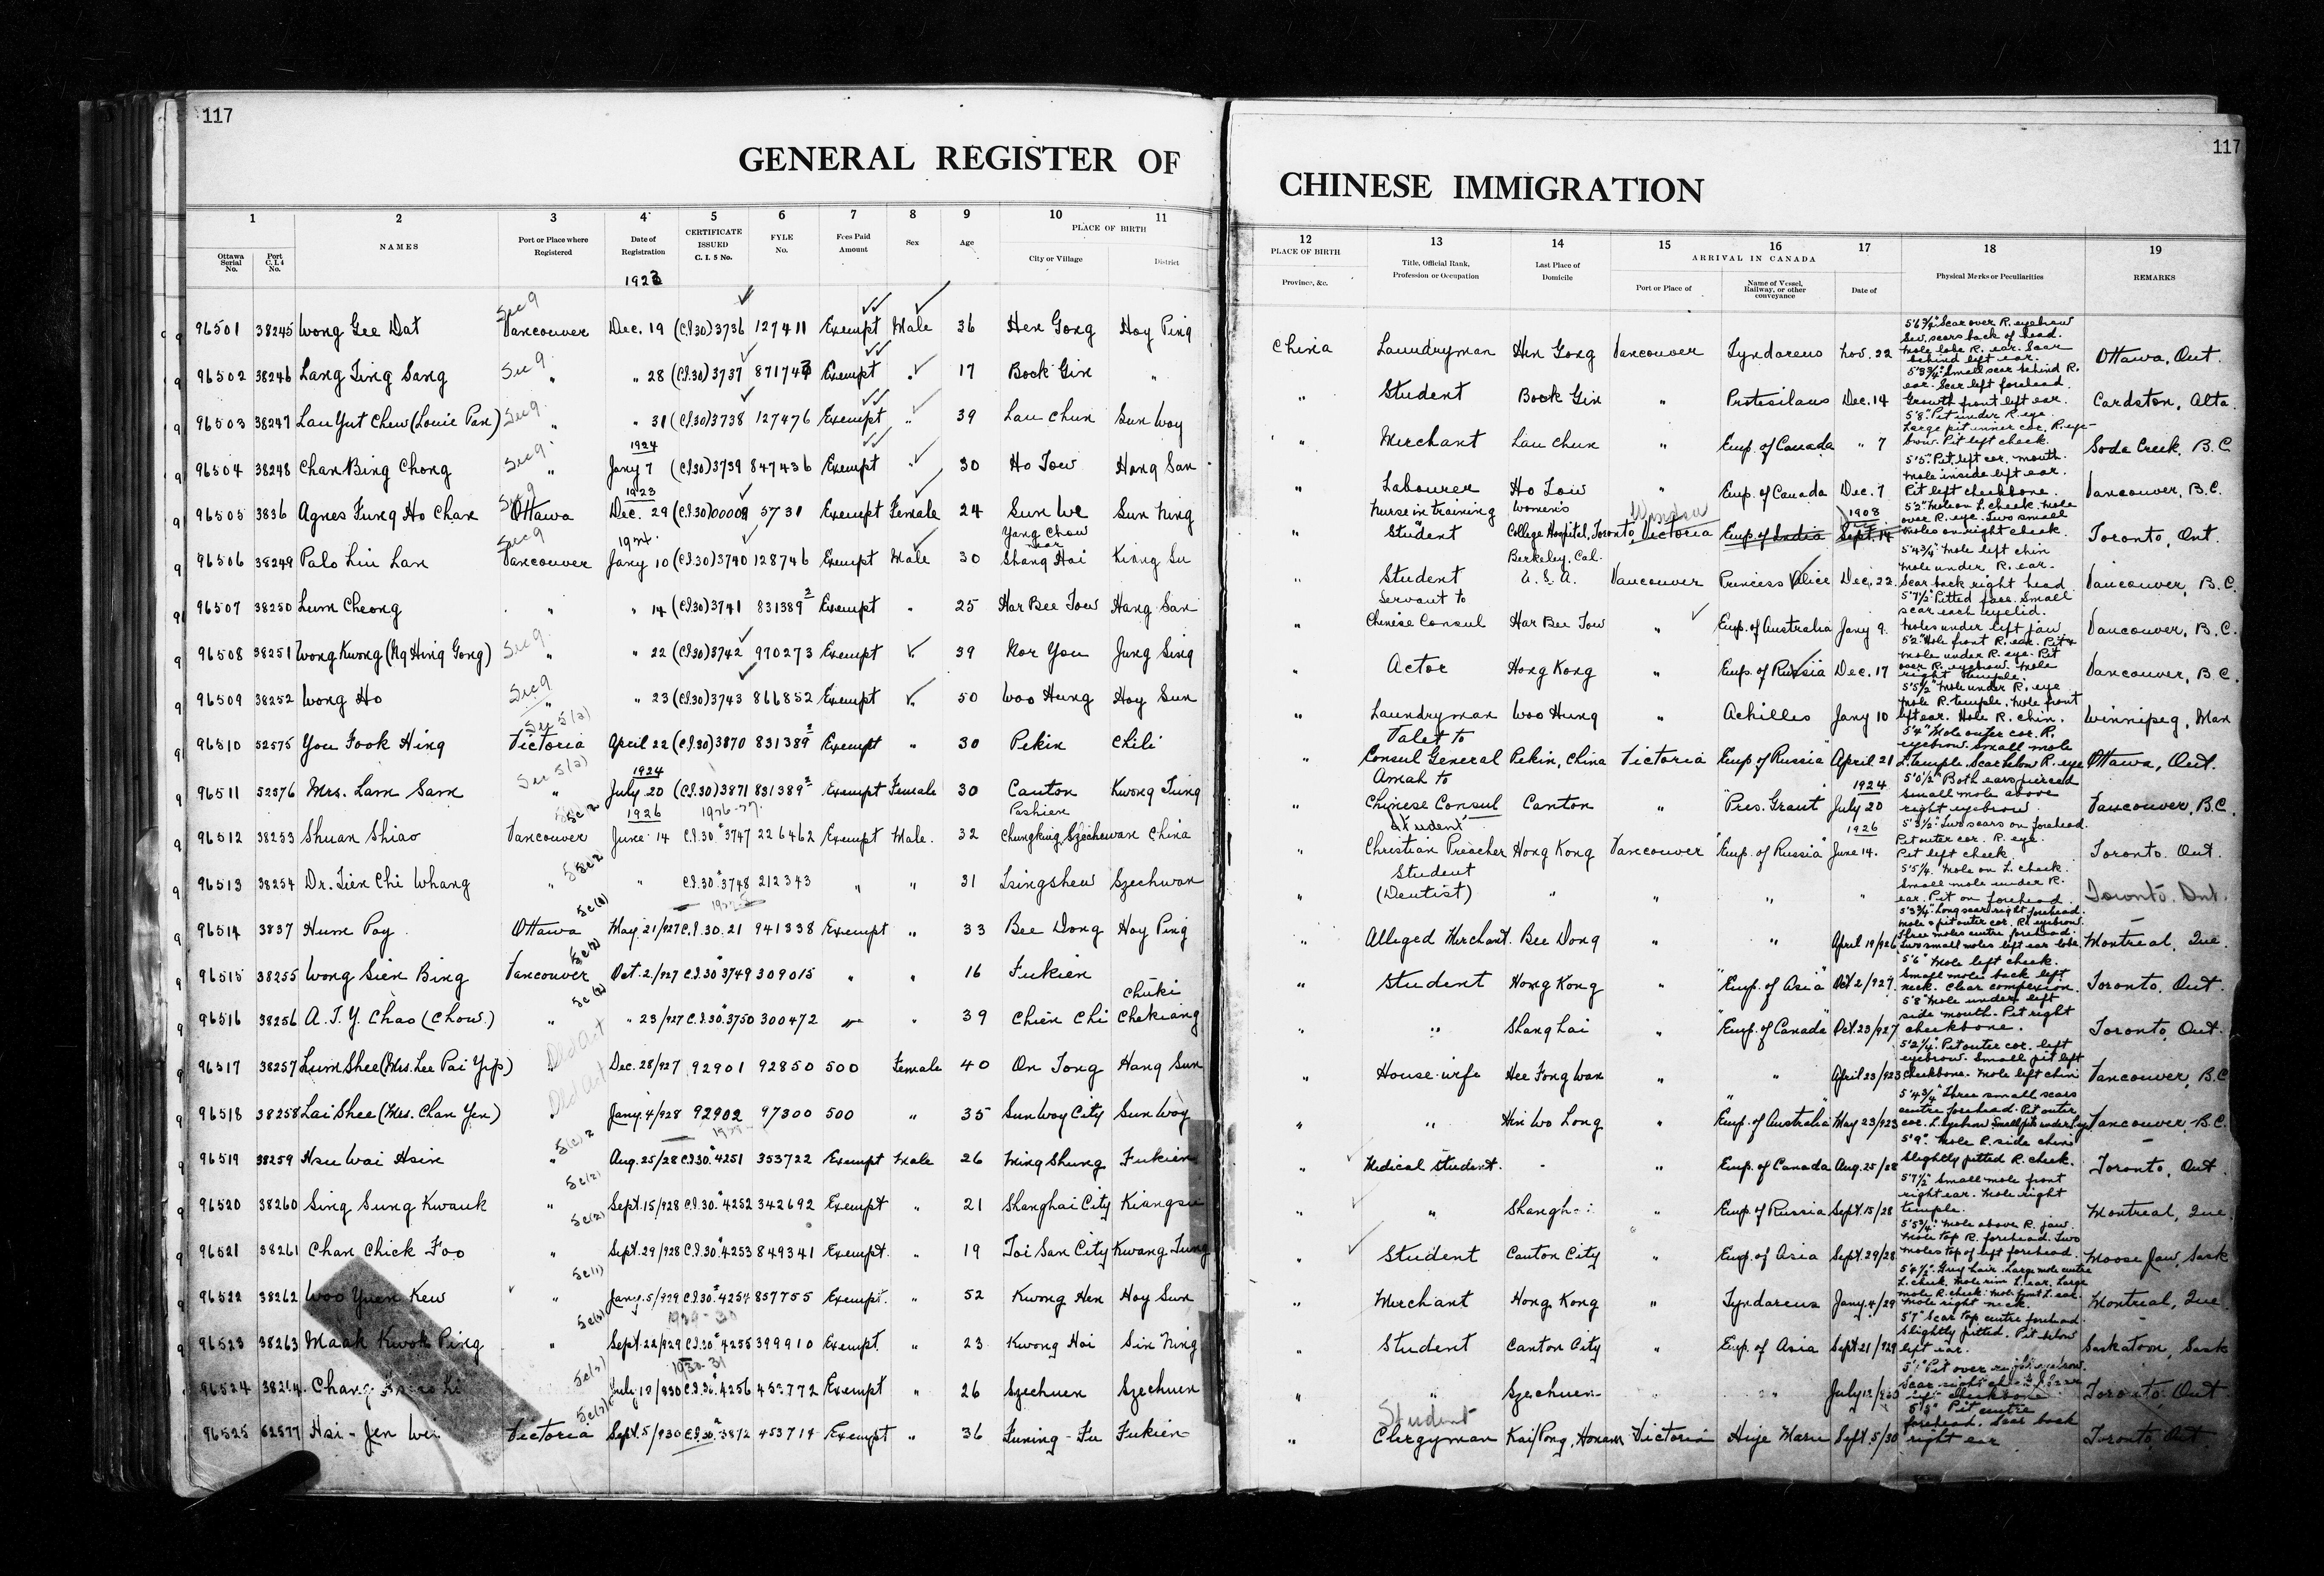 117
117
GENERAL REGISTER OF CHINESE IMMIGRATION
1 2 3 4 5 6 7 8 9 10 11
12 13 14 15 16 17 18 19
Ottawa Serial No. Port C.I.4 No. NAMES Port or Place where Registered Date of Registration CERTIFICATE ISSUED C. I. 5 No. FYLE No. Fees Paid Amount Sex Age PLACE OF BIRTH City or Village District
PLACE OF BIRTH Province, &c. Title, Official Rank, Profession or Occupation Last Place of Domicile ARRIVAL IN CANADA Port or Place of Name of Vessel, Railway, or other conveyance Date of Physical Marks or Peculiarities REMARKS
1923
96501 38245 Wong Gee Dat Sec 9 Vancouver Dec. 19 (C.I.30) 3736 127411 Exempt Male 36 Hen Gong Hoy Ping
96502 38246 Lang Ting Sang Sec 9 " " 28 (C.I.30) 3737 871743 Exempt " 17 Bock Gin "
96503 38247 Lau Yut Chew (Louie Pan) Sec 9 " " 31 (C.I.30) 3738 127476 Exempt " 39 Lau Chun Sun Woy
1924
96504 38248 Chan Bing Chong Sec 9 " Jany 7 (C.I.30) 3739 847436 Exempt " 30 Ho Tow Hang San
1923
96505 3836 Agnes Fung Ho Chan Sec 9 Ottawa Dec. 29 (C.I.30) 00009 5731 Exempt Female 24 Sun We Sun Ning
1924
96506 38249 Palo Liu Lan Sec 9 Vancouver Jany 10 (C.I.30) 3740 128746 Exempt Male 30 Yang Chow near Shang Hai Kiang Su
96507 38250 Lum Cheong " " 14 (C.I.30) 3741 831389² Exempt " 25 Har Bee Tow Hang San
96508 38251 Wong Kwong (Ng Hing Gong) Sec 9 " " 22 (C.I.30) 3742 970273 Exempt " 39 Kor You Jung Sing
96509 38252 Wong Ho Sec 9 " " 23 (C.I.30) 3743 866852 Exempt " 50 Woo Hung Hoy Sun
96510 52575 You Fook Hing Sec 5 (a) Victoria April 22 (C.I.30) 3870 831389² Exempt " 30 Pekin Chili
1924
96511 52576 Mrs. Lam Sam Sec 5 (a) " July 20 (C.I.30) 3871 831389² Exempt Female 30 Canton Kwong Tung
1926 1926-27
96512 38253 Shuan Shiao Vancouver June 14 C.I.30 3747 226462 Exempt Male 32 Pashien Chungking Szechewan China
96513 38254 Dr. Tien Chi Whang " " C.I.30 3748 212343 " " 31 Tsingshew Szechwan
96514 3837 Hum Poy Ottawa May 21/927 C.I.30. 21 941338 Exempt " 33 Bee Dong Hoy Ping
96515 38255 Wong Sien Bing Vancouver Oct. 2/927 C.I.30 3749 309015 " " 16 Fukien
96516 38256 A. T. Y. Chao (Chow.) " " 23/927 C.I.30. 3750 300472 " " 39 Chien Chi Chuki Chekiang
96517 38257 Lum Shee (Mrs. Lee Pai Yip) Old Act " Dec. 28/927 92901 92850 500 Female 40 On Tong Hang Sun
96518 38258 Lai Shee (Mrs. Chan Yen) Old Act " Jany. 4/928 92902 97300 500 " 35 Sun Woy City Sun Woy
96519 38259 Hsu Wai Hsin " Aug. 25/28 C.I.30. 4251 353722 Exempt Male 26 Ming Shung Fukien
96520 38260 Sing Sung Kwauk " Sept. 15/928 C.I.30. 4252 342692 Exempt " 21 Shanghai City Kiangsu
96521 38261 Chan Chick Foo " Sept. 29/928 C.I.30. 4253 849341 Exempt. " 19 Toi San City Kwang Tung
96522 38262 Woo Yuen Kew " Jany. 5/929 C.I.30. 4254 857755 Exempt. " 52 Kwong Hen Hoy Sun
1929-30
96523 38263 Maak Kwok Ping " Sept. 22/929 C.I.30 4255 399910 Exempt. " 23 Kwong Hoi Sin Ning
1930-31
96524 38264 Chang July 12/930 C.I.30. 4256 Exempt " 26 Szechuen Szechuen
96525 52577 Hsi-Jen Wei Victoria Sept. 5/930 C.I.30. 3872 453719 Exempt " 36 Funing-Fu Fukien
China Laundryman Hen Gong Vancouver Tyndareus Nov. 22 5'6¾" Scar over R. eyebrow Sev. scars back of head. Mole lobe R. ear. Scar behind left ear. Ottawa, Ont.
" Student Bock Gin " Protesilaus Dec. 14 5'3¾" Small scar behind R. ear. Scar left forehead. Growth front left ear. Cardston, Alta.
" Merchant Lau Chun " Emp. of Canada " 7 5'8" Pit under R. eye. Large pit inner cor. R. eye-brow. Pit left cheek. Soda Creek, B.C.
" Labourer Ho Tow " Emp. of Canada Dec. 7 5'5" Pit left cor. mouth. Mole inside left ear. Pit left cheekbone. Vancouver, B.C.
" Nurse in training Student Women's College Hospital, Toronto Victoria Emp. of India 1908 Sept. 14 5'2" Mole on L. cheek. Mole over R. eye. Two small moles on right cheek. Toronto, Ont.
" Student Berkeley, Cal. U.S.A. Vancouver Princess Alice Dec. 22 5'4¾" Mole left chin Mole under R. ear. Scar back right head Vancouver, B.C.
" Servant to Chinese Consul Har Bee Tow " Emp. of Australia Jany 9. 5'7½" Pitted face. Small scar each eyelid. Moles under left jaw Vancouver, B.C.
" Actor Hong Kong " Emp. of Russia Dec. 17 5'2" Mole front R. ear. Pit & mole under R. eye. Pit over R. eyebrow. Mole right temple. Vancouver, B.C.
" Laundryman Woo Hung " Achilles Jany 10 5'5½" Mole under R. eye Mole R. temple. Mole front left ear. Mole R. chin. Winnipeg, Man
" Valet to Consul General Pekin, China Victoria Emp of Russia April 21 5'4" Mole outer cor. R. eyebrow. Small mole L. temple. Scar below R. eye Ottawa, Ont.
" Amah to Chinese Consul Canton " "Pres. Grant 1924 July 20 5'0½" Both ears pierced Small mole above right eyebrow. Vancouver, B.C.
" Student Christian Preacher Hong Kong Vancouver "Emp. of Russia" 1926 June 14. 5'3½" Two scars on forehead. Pit outer cor. R. eye. Pit left cheek. Toronto. Ont.
" Student (Dentist) " " " " 5'5¼" Mole on L. cheek. Small mole under R. ear. Pit on forehead. Toronto. Ont.
" Alleged Merchant Bee Dong " " April 19/926 5'3¾" Long scar right forehead. Mole & pit outer cor. R. eyebrow. Three moles centre forehead. Two small moles left ear lobe. Montreal, Que.
" Student Hong Kong " "Emp. of Asia" Oct 2/927. 5'6" Mole left cheek. Small mole back left neck. Clear complexion. Toronto. Ont.
" " Shanghai " "Emp. of Canada" Oct. 23/927 5'8" Mole under left side mouth. Pit right cheekbone. Toronto, Ont.
" House-wife Hee Fong Wan " " April 23/923 5'2¼" Pit outer cor. left eyebrow. Small pit left cheekbone. Mole left chin Vancouver, B.C
" " Hin Wo Long " "Emp. of Australia" May 23/923 5'4¾" Three small scars centre forehead. Pit outer cor. L. eyebrow. Small pits under eye Vancouver, B.C.
" Medical Student. - " Emp. of Canada Aug. 25/28 5'9" Mole R. side chin Slightly pitted R. cheek. Toronto, Ont
" " Shanghai " Emp. of Russia Sept. 15/28 5'7½" Small mole front right ear. Mole right temple. Montreal, Que.
" Student Canton City " Emp. of Asia Sept. 29/28 5'5¾" Mole above R. jaw. Mole top R. forehead. Two moles top of left forehead. Moose Jaw, Sask
" Merchant Hong. Kong " Tyndareus Jany. 4/29 5'4½" Grey hair. Large mole centre L. cheek. Mole rim L. ear. Large mole R. cheek. Mole front L. ear. Mole right neck. Montreal, Que
" Student Canton City " Emp. of Asia Sept. 21/929 5'7" Scar top centre forehead. Slightly pitted. Pit below left ear. Saskatoon, Sask
" " Szechuen " " July 12/930 Pit over right eyebrow. Toronto, Ont
" Student Clergyman Kaifong, Honan Victoria Hije Maru Sept. 5/30 Pit centre forehead. Scar back right ear Toronto, Ont.